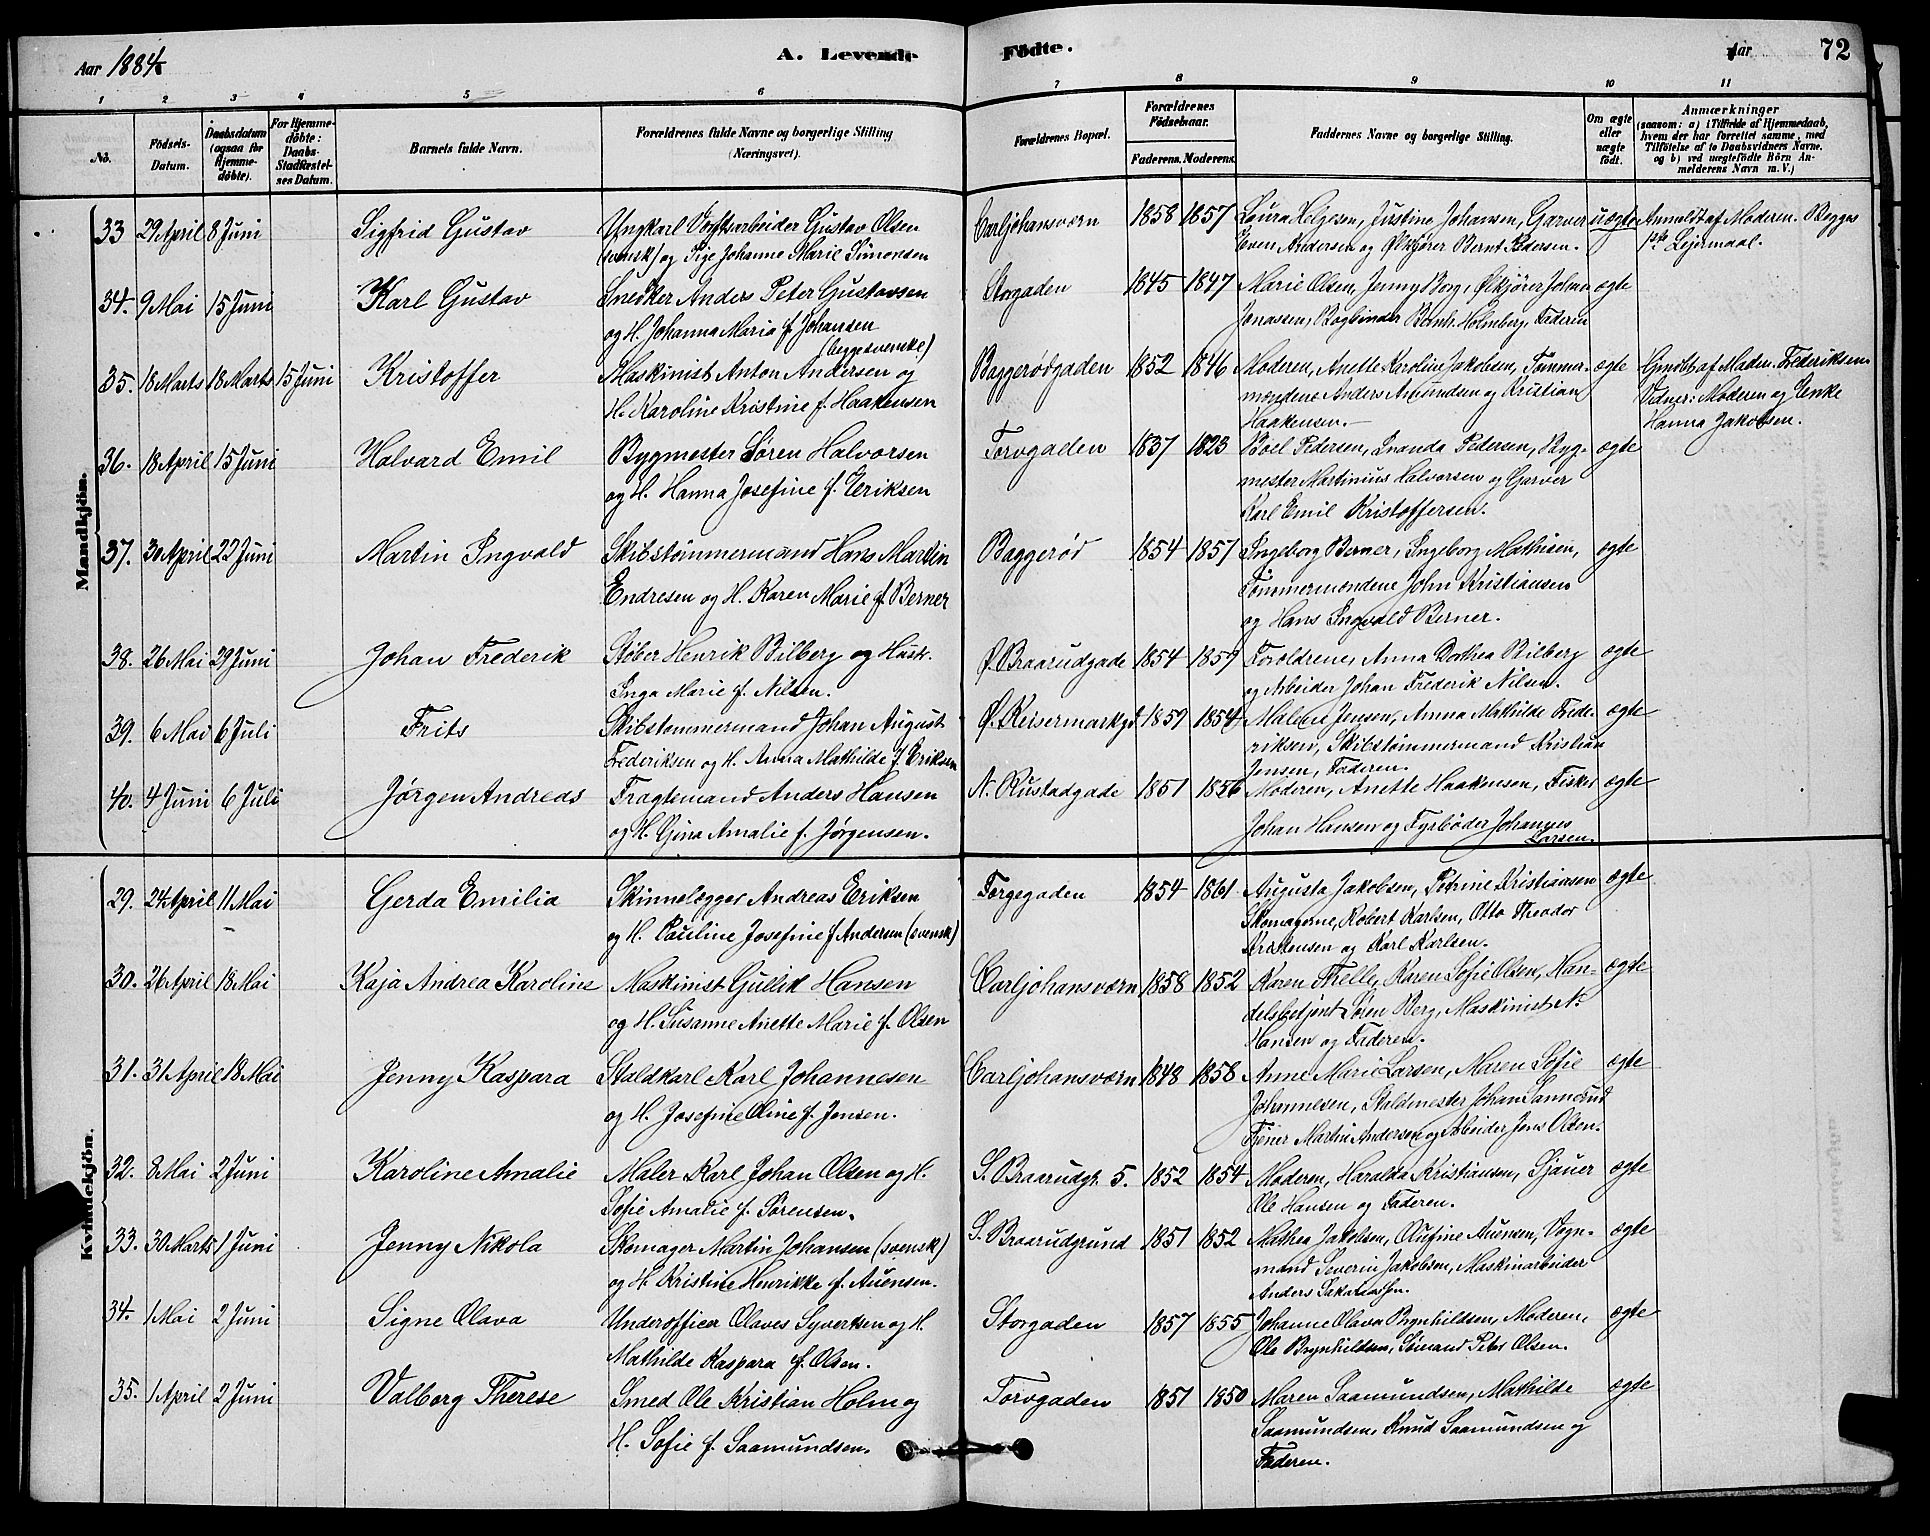 Aar 1884
A. Levende
Födte.
Aar
72
1 2 3 4 5 6 7 8 9 10 11
No.
Födsels-Datum.
Daabsdatum (ogsaa for Hjemme-döbte).
For Hjemme-döbte: Daabs-Stadfæstel-ses Datum.
Barnets fulde Navn.
Forældrenes fulde Navne og borgerlige Stilling (Næringsvei).
Forældrenes Bopæl.
Forældrenes Födselsaar.
Faderens. Moderens.
Faddernes Navne og borgerlige Stilling.
Om ægte eller uægte födt.
Anmærkninger (saasom: a) i Tilfælde af Hjemmedaab, hvem der har forrettet samme, med Tilföielse af to Daabsvidners Navne, og b) ved uægtefödte Börn An-melderens Navn m. V.)
Mandkjön.
33 29 April 8 Juni Sigfrid Gustav Ungkarl Værftsarbeider Gustav Olsen Carljohansværn 1858 1857 Laura Helgesen, Justine Johansen, Garver uægte Anmeldt af Moderen. Begges
(svensk) og Pige Johanne Marie Simonsen Even Andersen og Ølkjører Bernt Pedersen. 1ste Lejermaal.
34. 9 Mai 15 Juni Karl Gustav Snedker Anders Peter Gustavsen Storgaden 1845 1847 Marie Olsen, Jenny Borg, Ølkjører Johan ægte
og H. Johanna Maria f. Johansen Jonassen, Bogbinder Bernh. Holmberg, Faderen
(begge svenske)
35. 18 Marts 18 Marts 15 Juni Kristoffer Maskinist Anton Andersen og Baggerødgaden 1852 1846 Moderen, Anette Karoline Jakobsen, Tømmer- ægte Hjmdbt af Madm. Frederiksen
H. Karoline Kristine f. Haakensen mændene Anders Amundsen og Kristian Vidner: Moderen og Enke
Haakensen. Hanna Jakobsen.
36. 18 April 15 Juni Halvard Emil Bygmester Søren Halvorsen Torvgaden 1837 1823 Boel Pedersen, Pedersen, Byg- ægte
og H. Hanna Josefine f. Eriksen mester Martinius Halvorsen og Garver
Karl Emil Kristoffersen.
37. 30 April 22 Juni Martin Ingvald Skibstømmermand Hans Martin Baggerød 1854 1857 Ingeborg Berner, Ingeborg Mathisen, ægte
Endresen og H. Karen Marie f. Berner Tømmermændene John Kristiansen
og Hans Ingvald Berner.
38. 26 Mai 29 Juni Johan Frederik Støber Henrik Bilberg og Hust. Ø. Braarudgade 1854 1859 Forældrene, Anna Dorthea Bilberg ægte
Inga Marie f. Nilsen. og Arbeider Johan Frederik Nilsen.
39. 6 Mai 6 Juli Frits Skibstømmermand Johan August Ø. Keisermarkgd. 1859 1854 Malene Jensen, Anna Mathilde Frede- ægte
Frederiksen og H. Anna Mathilde f. Eriksen riksen, Skibstømmermand Kristian
Jensen, Faderen.
40. 4 Juni 6 Juli Jørgen Andreas Fragtemand Anders Hansen N. Rustadgade 1851 1856 Moderen, Anette Haakensen, Fisker ægte
og H. Gina Amalie f. Jørgensen. Johan Hansen og Fyrbøder Johannes
Larsen.
Kvindekjön.
29. 24 April 11 Mai Gerda Emilia Skinnelægger Andreas Eriksen Torgegaden 1854 1861 Augusta Jakobsen, Petrine Kristiansen ægte
og H. Pauline Josefine f. Andersen (svensk) Skomagerne, Robert Karlsen, Otto Theodor
Kristensen og Karl Karlsen.
30. 26 April 18 Mai Kaja Andrea Karoline Maskinist Gullik Hansen Carljohansværn 1858 1852 Karen Thelle, Karen Sofie Olsen, Han- ægte
og H. Susanne Anette Marie f. Olsen delsbetjent Søren Berg, Maskinist N.
Hansen og Faderen.
31. 31 April 18 Mai Jenny Kaspara Staldkarl Karl Johannesen Carljohansværn 1848 1858 Anne Marie Larsen, Maren Sofie ægte
og H. Josefine Oline f. Jensen. Johannesen, Staldmester Johan Sannerud
Tjener Martin Andersen og Arbeider Jens Olsen.
32. 8 Mai 2 Juni Karoline Amalie Maler Karl Johan Olsen og H. S. Braarudgt. 5. 1852 1854 Moderen, Haralda Kristiansen, Sjauer ægte
Sofie Amalie f. Sørensen. Ole Hansen og Faderen.
33. 30 Marts 1 Juni Jenny Nikola Skomager Martin Johansen (svensk) S. Braarudgrund 1851 1852 Mathea Jakobsen, Olufine Auensen, Vogn- ægte
og H. Kristine Henrikke f. Auensen. mand Severin Jakobsen, Maskinarbeider
Anders Sakariassen.
34. 1 Mai 2 Juni Signe Olava Underofficer Olaves Syvertsen og H. Storgaden 1857 1855 Johanne Olava Brynhildsen, Moderen, ægte
Mathilde Kaspara f. Olsen. Ole Brynhildsen, Sømand Peter Olsen.
35. 1 April 2 Juni Valborg Therese Smed Ole Kristian Holm og Torvgaden 1851 1850 Maren Saamundsen, Mathilde ægte
H. Sofie f. Saamundsen. Saamundsen, Knud Saamundsen og
Faderen.